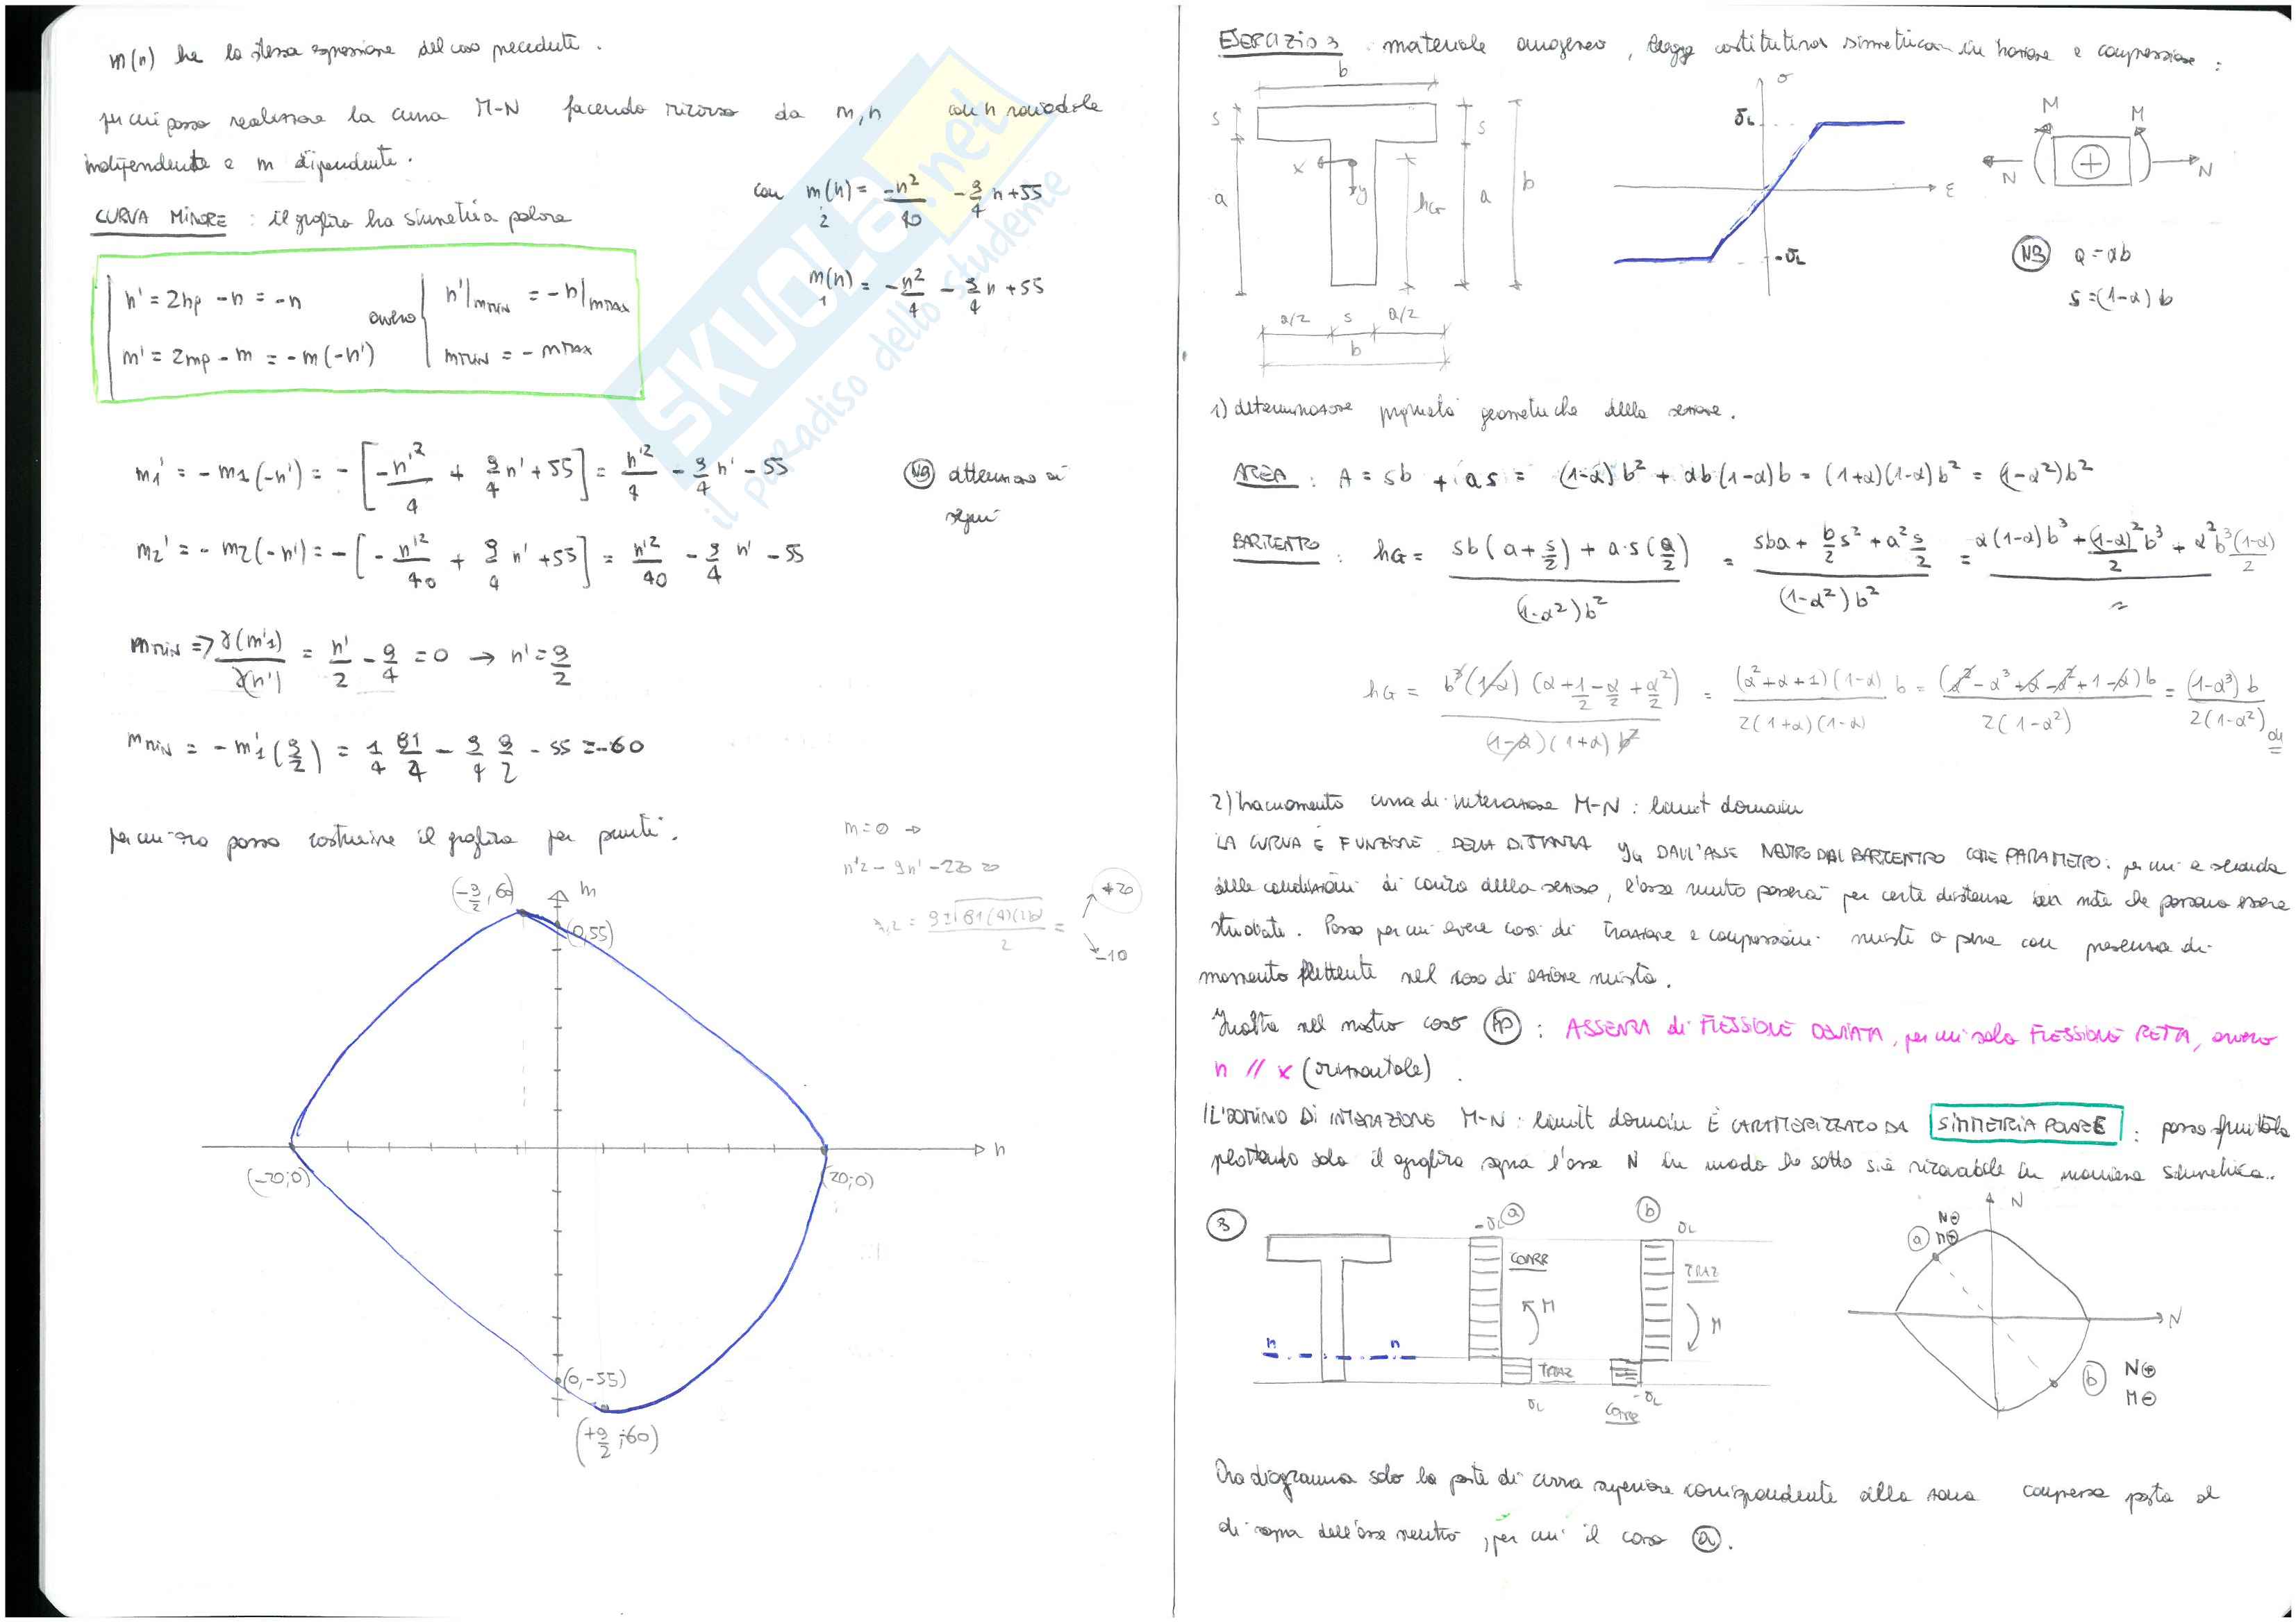 m(n) ha la stessa espressione del caso precedente.
per cui posso realizzare la curva M-N facendo ricorso da m,n con n variabile
indipendente e m dipendente.
con m2(n) = -n²/40 - 9/4 n + 55
CURVA MINORE : il grafico ha simmetria polare
m1(n) = -n²/4 - 9/4 n + 55
n' = 2np - n = -n
m' = 2mp - m = -m(-n')
ovvero
n'|mMIN = -n|mMAX
mMIN = - mMAX
m1' = - m1(-n') = - [-n'²/4 + 9/4 n' + 55] = n'²/4 - 9/4 n' - 55
NB attenzione ai segni
m2' = - m2(-n') = - [- n'²/40 + 9/4 n' + 55] = n'²/40 - 9/4 n' - 55
mMIN => ∂(m'1)/∂(n') = n'/2 - 9/4 = 0 → n' = 9/2
mMIN = - m'1(9/2) = 1/4 81/4 - 9/4 9/2 - 55 = -60
per cui ora posso costruire il grafico per punti.
m=0 →
n'² - 9n' - 220
= +20
-10
(-9/2, 60)
m
(0,55)
n
(-20;0)
(20;0)
(0,-55)
(+9/2 ;-60)
SKUOLA.net
il paradiso dello studente
ESERCIZIO 3 materiale omogeneo, legge costitutiva simmetrica in trazione e compressione :
b
s
a
x
y
hG
s
a
b
a/2 s a/2
b
σ
σL
-σL
ε
M M
N + N
NB a = αb
s = (1-α) b
1) determinazione proprietà geometriche della sezione.
AREA : A = sb + as = (1-α) b² + αb(1-α)b = (1+α)(1-α)b² = (1-α²)b²
BARICENTRO : hG = sb(a + s/2) + a·s(a/2) / (1-α²)b² = sba + b/2 s² + a² s/2 / (1-α²)b² = α(1-α)b³ + (1-α)²/2 b³ + α²b³(1-α)/2 / "
hG = b³(1-α)(α + 1/2 - α/2 + α²/2) / (1-α)(1+α)b² = (α²+α+1)(1-α) b / 2(1+α)(1-α) = (α² - α³ + α - α² + 1 - α)b / 2(1-α²) = (1-α³) b / 2(1-α²) ok
2) tracciamento curva di interazione M-N : limit domain
LA CURVA È FUNZIONE DELLA DISTANZA yn DALL'ASSE NEUTRO DAL BARICENTRO COME PARAMETRO: per cui a seconda
delle condizioni di carico della sezione, l'asse neutro passerà per certe distanze ben note che possono essere
studiate. Posso per cui avere casi di trazione e compressione miste o pure con presenza di
momento flettente nel caso di azione mista.
Inoltre nel nostro caso HP : ASSENZA di FLESSIONE DEVIATA, per cui solo FLESSIONE RETTA, ovvero
n // x (orizzontale).
IL DOMINIO DI INTERAZIONE M-N : limit domain È CARATTERIZZATO DA SIMMETRIA POLARE : posso sfruttarla
plottando solo il grafico sopra l'asse N in modo che sotto sia ricavabile in maniera simmetrica.
3
n n
-σL a
COMPR
M
TRAZ
σL
b σL
TRAZ
M
-σL
COMP
N
a N⊖
N
b N⊕
M⊖
Ora diagramma solo la parte di curva superiore corrispondente alla zona compressa posta al
di sopra dell'asse neutro, per cui il caso a.